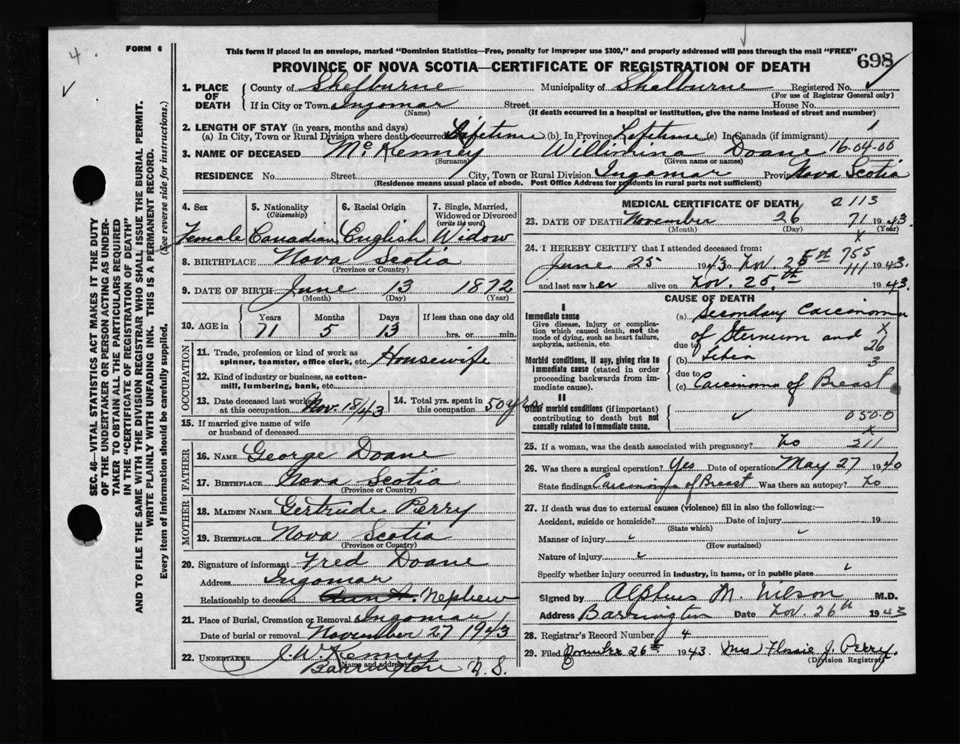 4.
FORM 6
This form if placed in an envelope, marked "Dominion Statistics—Free, penalty for improper use $300," and properly addressed will pass through the mail "FREE"
PROVINCE OF NOVA SCOTIA—CERTIFICATE OF REGISTRATION OF DEATH
698
SEC. 46—VITAL STATISTICS ACT MAKES IT THE DUTY
OF THE UNDERTAKER OR PERSON ACTING AS UNDER-
TAKER TO OBTAIN ALL THE PARTICULARS REQUIRED
IN THE "CERTIFICATE OF REGISTRATION OF DEATH"
AND TO FILE THE SAME WITH THE DIVISION REGISTRAR WHO SHALL ISSUE THE BURIAL PERMIT.
WRITE PLAINLY WITH UNFADING INK. THIS IS A PERMANENT RECORD.
Every item of information should be carefully supplied. (See reverse side for instructions.)
1. PLACE OF DEATH County of Shelburne Municipality of Shelburne Registered No.
(For use of Registrar General only)
If in City or Town Ingomar Street House No.
(Name) (If death occurred in a hospital or institution, give the name instead of street and number)
2. LENGTH OF STAY (in years, months and days)
(a) In City, Town or Rural Division where death occurred Lifetime (b) In Province Lifetime (c) In Canada (if immigrant)
3. NAME OF DECEASED McKenney Willimina Doane 16-04-00
(Surname) (Given name or names)
RESIDENCE No. Street City, Town or Rural Division Ingomar Province Nova Scotia
(Residence means usual place of abode. Post Office Address for residents in rural parts not sufficient)
4. Sex Female
5. Nationality (Citizenship) Canadian
6. Racial Origin English
7. Single, Married, Widowed or Divorced (write the word) Widow
8. BIRTHPLACE Nova Scotia
(Province or Country)
9. DATE OF BIRTH June 13 1872
(Month) (Day) (Year)
10. AGE in Years Months Days If less than one day old
71 5 13 hrs. or min.
OCCUPATION
11. Trade, profession or kind of work as
spinner, teamster, office clerk, etc. Housewife
12. Kind of industry or business, as cotton-
mill, lumbering, bank, etc.
13. Date deceased last worked at this occupation Nov. 18/43 14. Total yrs. spent in this occupation 50 yrs
15. If married give name of wife
or husband of deceased
FATHER
16. NAME George Doane
17. BIRTHPLACE Nova Scotia
(Province or Country)
MOTHER
18. MAIDEN NAME Gertrude Perry
19. BIRTHPLACE Nova Scotia
(Province or Country)
20. Signature of informant Fred Doane
Address Ingomar
Relationship to deceased Nephew
21. Place of Burial, Cremation or Removal Ingomar
Date of burial or removal November 27 1943
22. UNDERTAKER J. W. Kenney
(Name and address) Barrington N.S.
MEDICAL CERTIFICATE OF DEATH a 113
23. DATE OF DEATH November 26 71 1943
(Month) (Day) (Year)
24. I HEREBY CERTIFY that I attended deceased from:
June 25 1943 to Nov 25th 755 1943.
and last saw her alive on Nov. 25th 111 1943.
CAUSE OF DEATH
I
Immediate cause
Give disease, injury or complica-
tion which caused death, not the
mode of dying, such as heart failure,
asphyxia, asthenia, etc.
(a) Secondary Carcinoma
of Sternum and 26
due to Liver
(b) 3
Morbid conditions, if any, giving rise to
immediate cause (stated in order
proceeding backwards from im-
mediate cause).
due to
(c) Carcinoma of Breast
II
Other morbid conditions (if important)
contributing to death but not
causally related to immediate cause.
050.0
25. If a woman, was the death associated with pregnancy? No 211
26. Was there a surgical operation? Yes Date of operation May 27 1940
State findings Carcinoma of Breast Was there an autopsy? No
27. If death was due to external causes (violence) fill in also the following:—
Accident, suicide or homicide? Date of injury 19
(State which)
Manner of injury
(How sustained)
Nature of injury
Specify whether injury occurred in industry, in home, or in public place
Signed by Alpheus M. Wilson M.D.
Address Barrington Date Nov. 26th 1943
28. Registrar's Record Number 4
29. Filed November 26th 1943. Mrs Flossie J. Perry.
(Division Registrar)